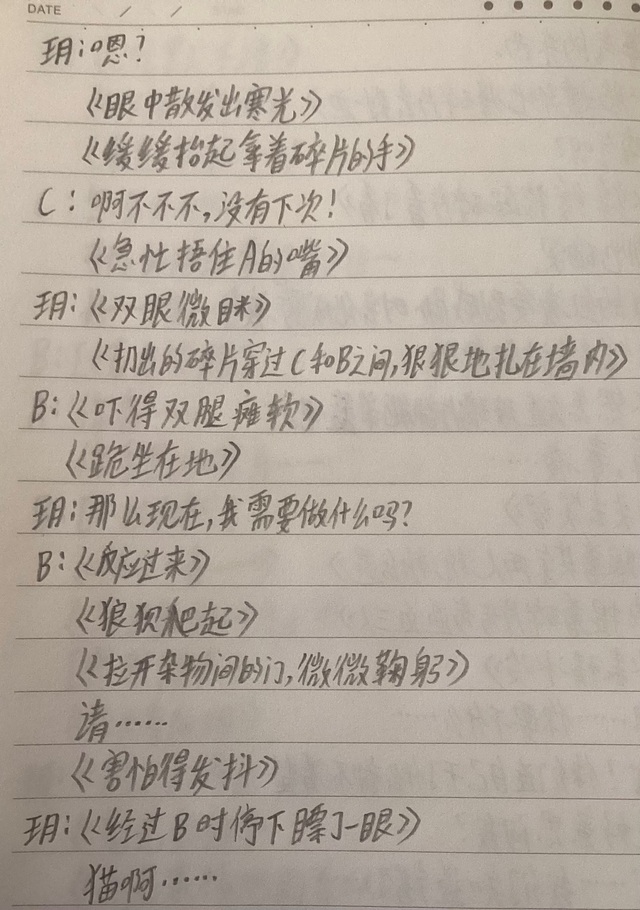 DATE / /
玥:嗯?
《眼中散发出寒光》
《缓缓抬起拿着碎片的手》
C:啊不不不,没有下次!
《急忙捂住A的嘴》
玥:《双眼微眯》
《扔出的碎片穿过C和B之间,狠狠地扎在墙内》
B:《吓得双腿瘫软》
《跪坐在地》
玥:那么现在,我需要做什么吗?
B:《反应过来》
《狼狈爬起》
《拉开杂物间的门,微微鞠躬》
请……
《害怕得发抖》
玥:《经过B时停下瞟了一眼》
猫啊……